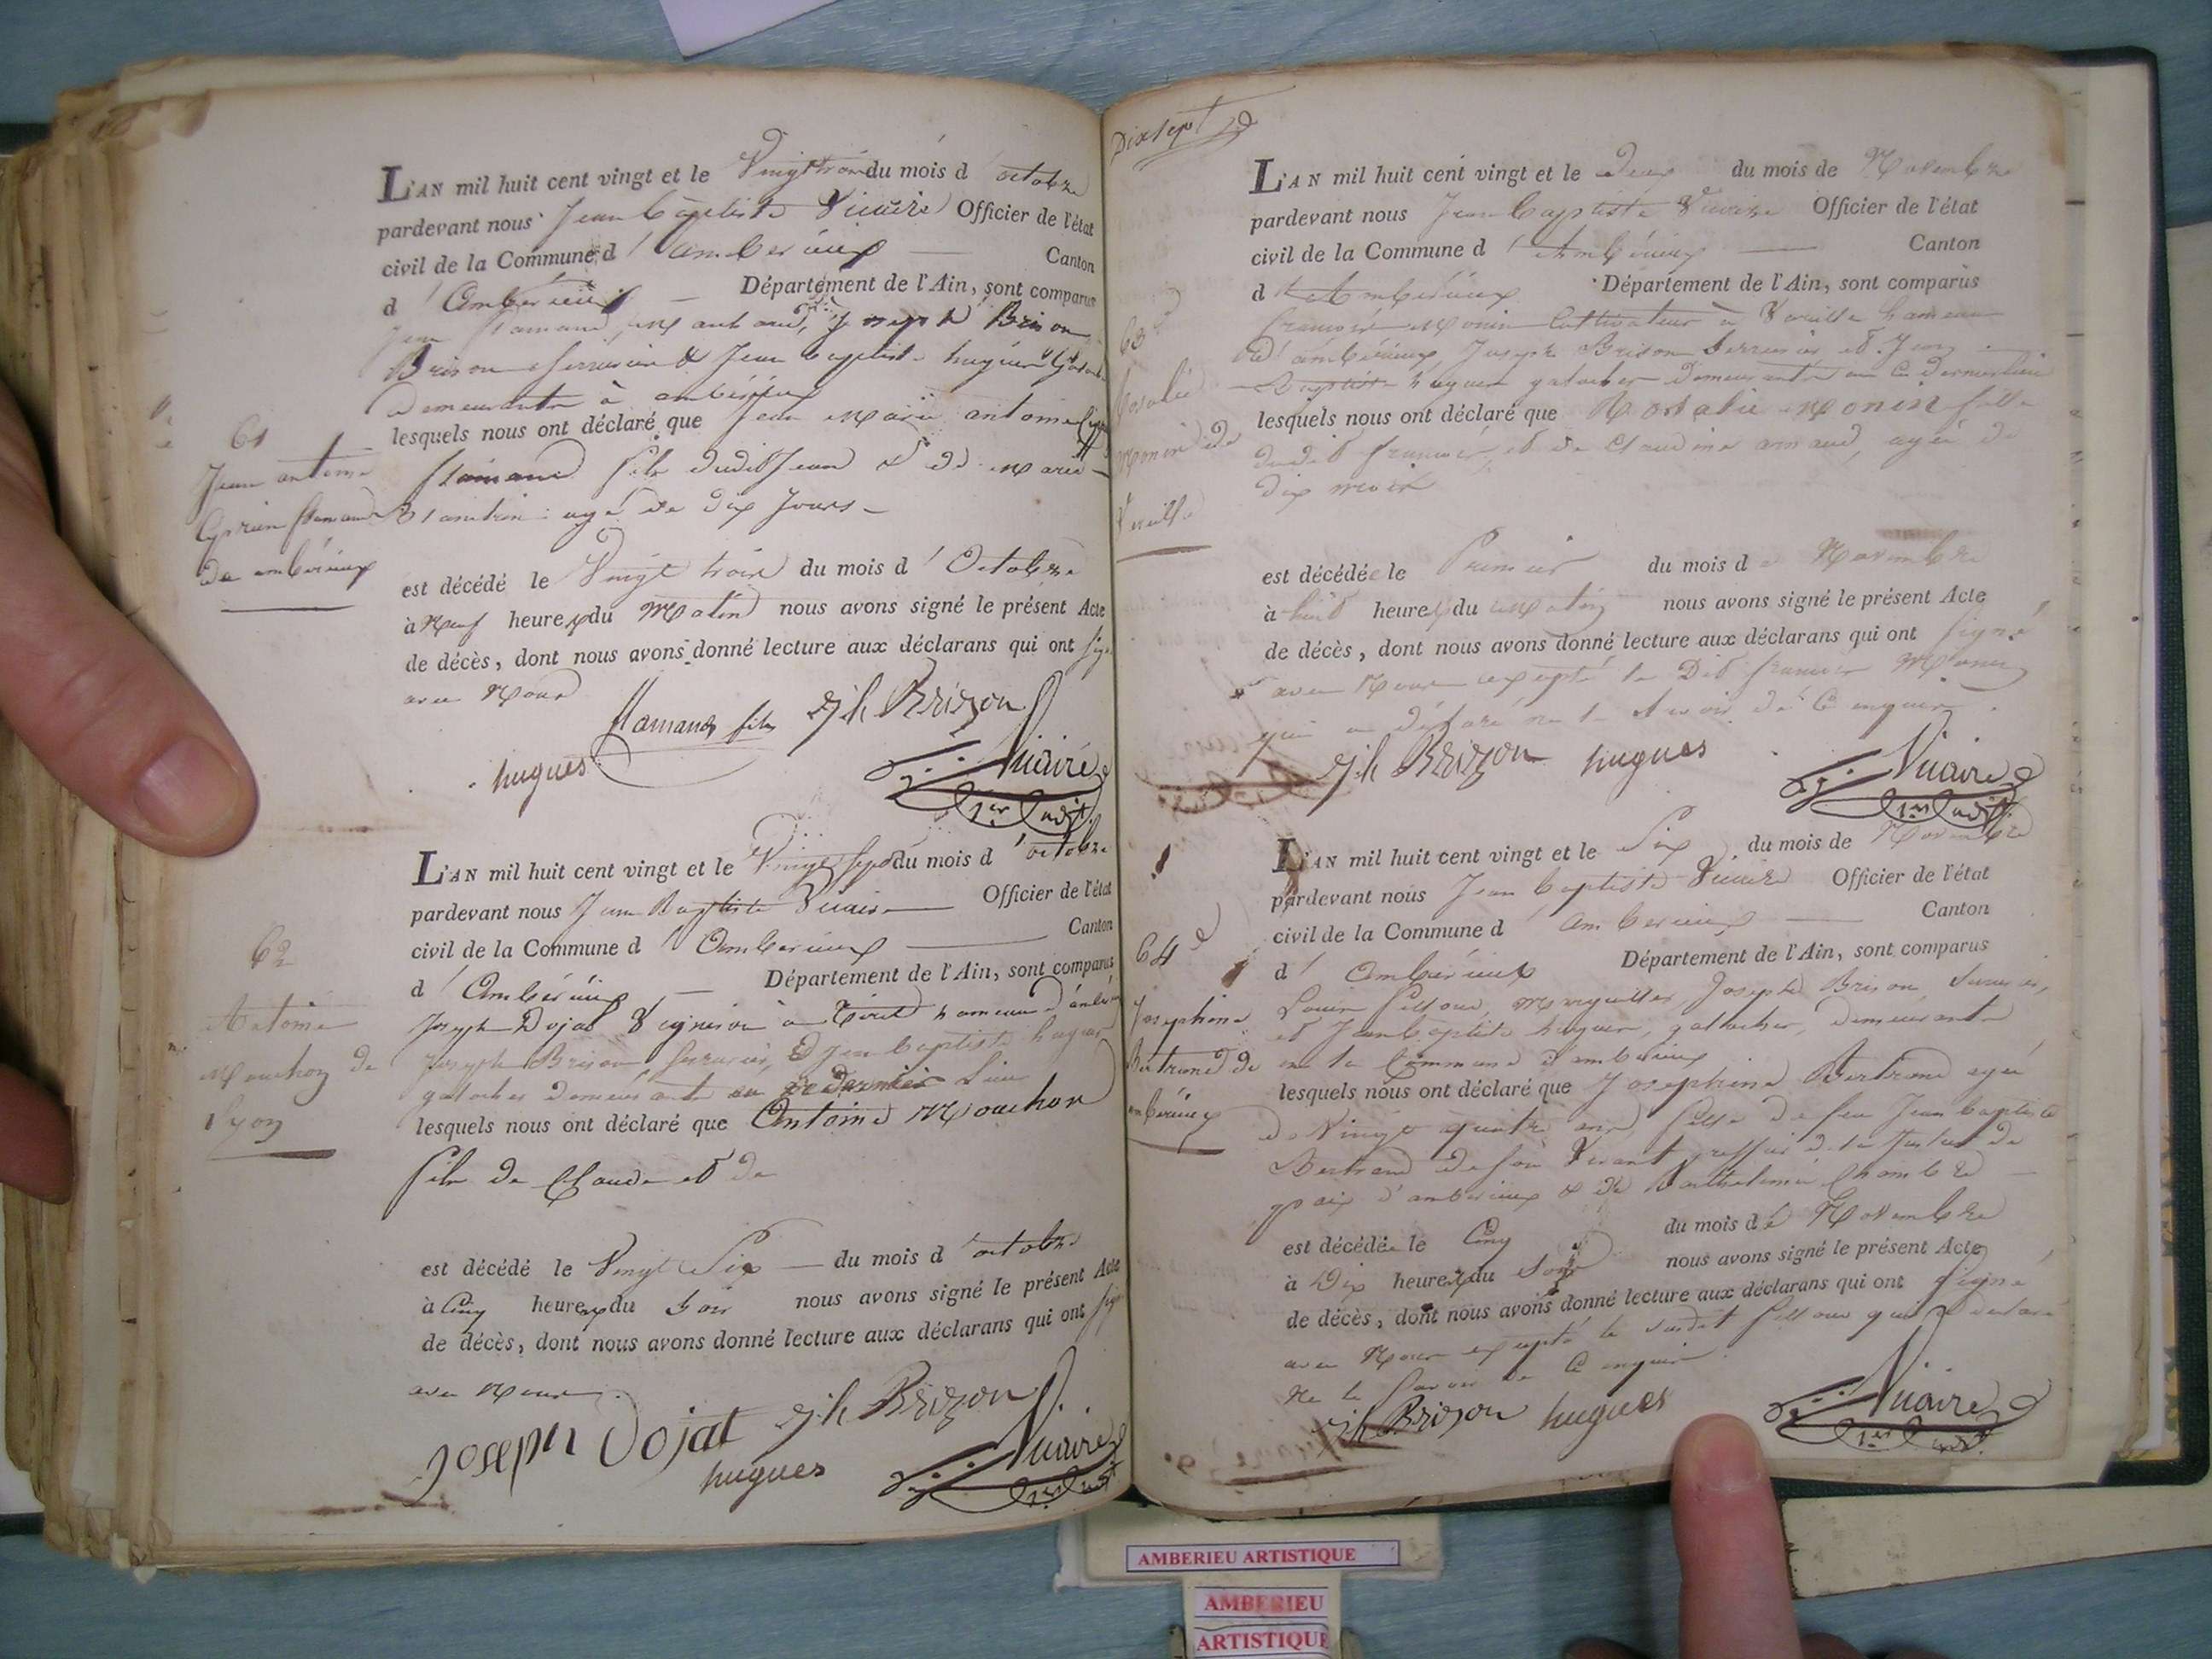 L'AN mil huit cent vingt et le Vingt trois du mois d'octobre
pardevant nous Jean baptiste Vicaire Officier de l'état
civil de la Commune d'amberieux Canton
d'Amberieux Département de l'Ain, sont comparus
Jean flamand, Joseph Brison
Brison Serrurier & Jean baptiste hugues
demeurants à ambérieux
lesquels nous ont déclaré que Jean Marie antoine
flamand fils dudit Jean & de Marie
agé de dix Jours
est décédé le Vingt trois du mois d'Octobre
à Neuf heures du Matin nous avons signé le présent Acte
de décès, dont nous avons donné lecture aux déclarans qui ont
avec Nous
flamand fils Jh Brizon
hugues Vicaire
1er adjt
61
Jean antoine
Cyprien flamand
de ambérieux
L'AN mil huit cent vingt et le Vingt Sept du mois d'octobre
pardevant nous Jean Baptiste Vicaire Officier de l'état
civil de la Commune d'Amberieux Canton
d'Ambérieux Département de l'Ain, sont comparus
Joseph Dojat Vigneron à Tiret hameau d'ambérieux
Joseph Brison Serrurier, & Jean baptiste hugues
galocher demeurants en ce dernier Lieu
lesquels nous ont déclaré que Antoine Mouchon
fils de Claude et de
est décédé le Vingt Six du mois d'octobre
à Cinq heures du Soir nous avons signé le présent Acte
de décès, dont nous avons donné lecture aux déclarans qui ont
avec Nous
Joseph Dojat Jh Brizon
hugues Vicaire
1er adjt
62
Antoine
Mouchon de
Lyon
Dixsept
L'AN mil huit cent vingt et le Deux du mois de Novembre
pardevant nous Jean baptiste Vicaire Officier de l'état
civil de la Commune d'Ambérieux Canton
d'Ambérieux Département de l'Ain, sont comparus
françois Monin Cultivateur à Vareille hameau
d'ambérieux, Joseph Brison Serrurier et Jean
Baptiste hugues galocher demeurants en ce dernier lieu
lesquels nous ont déclaré que Rosalie Monin fille
dudit françois et de Claudine arnaud, agée de
dix mois
est décédée le Premier du mois de Novembre
à huit heures du Matin nous avons signé le présent Acte
de décès, dont nous avons donné lecture aux déclarans qui ont signé
avec Nous excepté le Dit françois Monin
qui a déclaré ne le savoir de ce enquis
Jh Brizon hugues Vicaire
1er adjt
63
Rosalie
Monin de
Vareille
L'AN mil huit cent vingt et le Six du mois de Novembre
pardevant nous Jean baptiste Vicaire Officier de l'état
civil de la Commune d'amberieux Canton
d'Ambérieux Département de l'Ain, sont comparus
Louis Marguiller, Joseph Brison Serrurier,
et Jean baptiste hugues, galocher, demeurants
en la Commune d'ambérieux
lesquels nous ont déclaré que Josephine Bertrand agée
de Vingt quatre ans, fille de feu Jean baptiste
Bertrand de son Vivant greffier de la Justice de
paix d'amberieux & de
est décédée le Cinq du mois de Novembre
à Dix heures du Soir nous avons signé le présent Acte
de décès, dont nous avons donné lecture aux déclarans qui ont signé
avec Nous excepté le susdit qui a déclaré
Ne le savoir de ce enquis
Jh Brizon hugues Vicaire
1er adjt
64e
Josephine
Bertrand de
ambérieux
AMBERIEU ARTISTIQUE
AMBERIEU
ARTISTIQUE